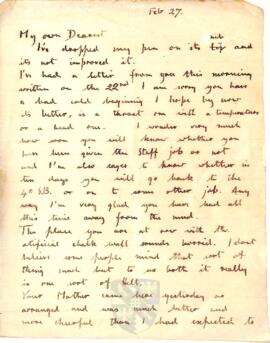 Feb 27.
My own Dearest
nib
I've dropped my pen on its tip and
its not improved it.
I've had a letter from you this morning
written on the 22nd I am sorry you have
a bad cold beginning I hope by now
its better, is a throat one with a temperature
or a head one. I wonder very much
how soon you will know whether you
have been given the Staff job or not
and I'm also eager to know whether in
ten days you will go back to the
4th S.B. or on to some other job. Any
way I'm very glad you have had all
this time away from the mud.
The place you are at now with the
artificial chalk wall sounds horrid. I dont
believe some people mind that sort of
thing much but to us both it really
is one sort of hell.
Your Mother came here yesterday as
arranged and was much better and
more cheerful than I had expected to